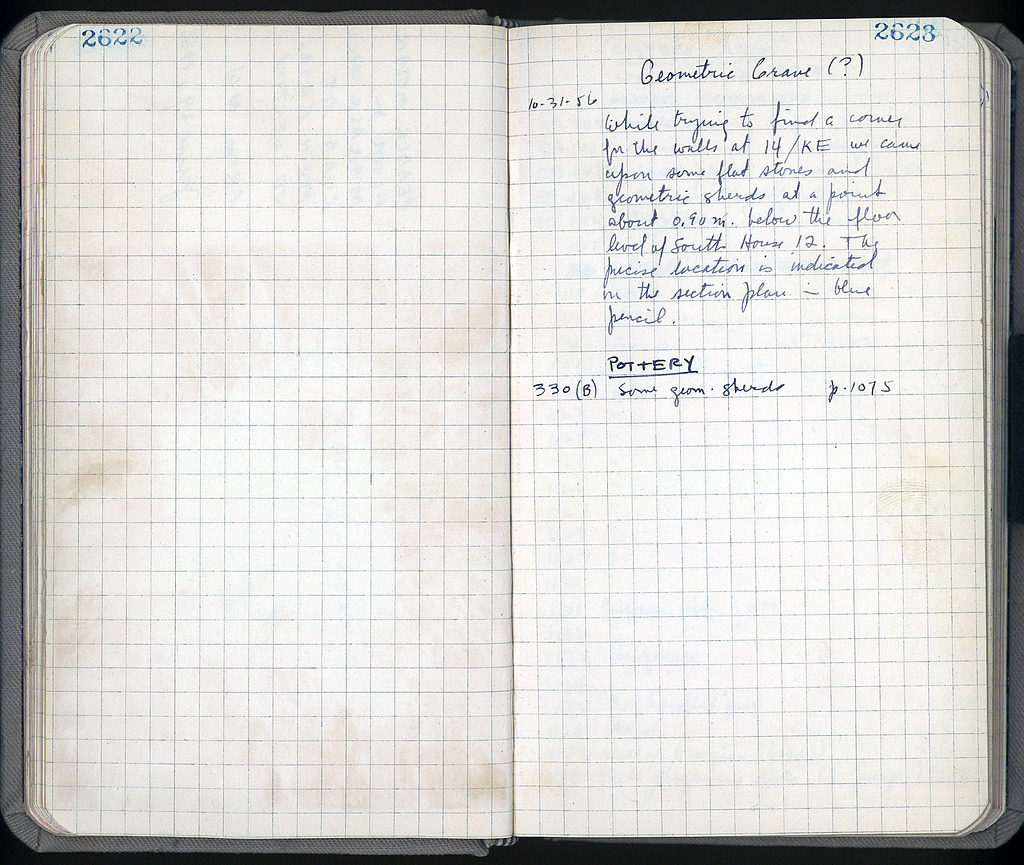 2622
2623
Geometric Grave (?)
10-31-56
While trying to find a corner
for the walls at 14/KE we came
upon some flat stones and
geometric sherds at a point
about 0.90 m. below the floor
level of South House 12. The
precise location is indicated
on the section plan in blue
pencil.
POTTERY
330 (B) Some geom. sherds p. 1075